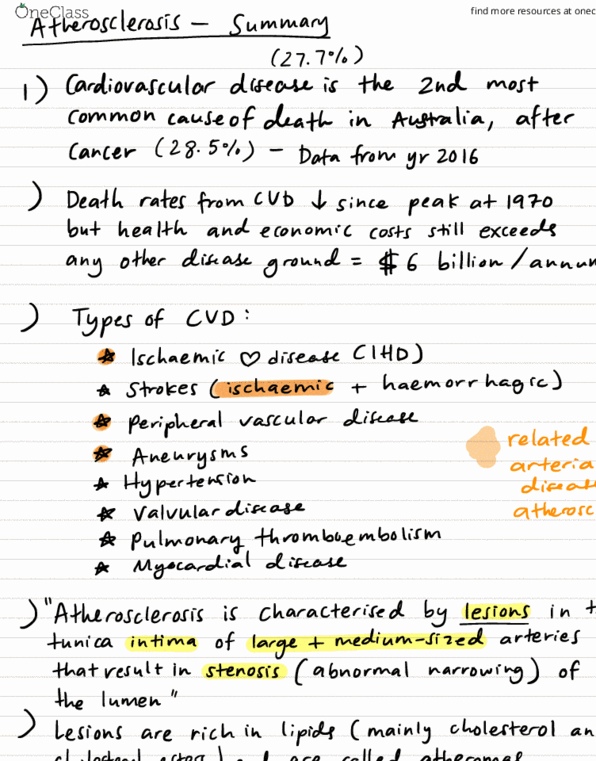 OneClass
find more resources at onec
Atherosclerosis – Summary
(27.7%)
1) Cardiovascular disease is the 2nd most
common cause of death in Australia, after
cancer (28.5%) – Data from yr 2016
) Death rates from CVD ↓ since peak at 1970
but health and economic costs still exceeds
any other disease ground = $6 billion/annum
) Types of CVD:
☆ Ischaemic ♡ disease (IHD)
☆ Strokes (ischaemic + haemorrhagic)
☆ Peripheral vascular disease
☆ Aneurysms
☆ Hypertension
☆ Valvular disease
☆ Pulmonary thromboembolism
☆ Myocardial disease
related
arteria
disea
atherosc
) "Atherosclerosis is characterised by lesions in t
tunica intima of large + medium-sized arteries
that result in stenosis (abnormal narrowing) of
the lumen"
) Lesions are rich in lipids (mainly cholesterol an
called atheromas